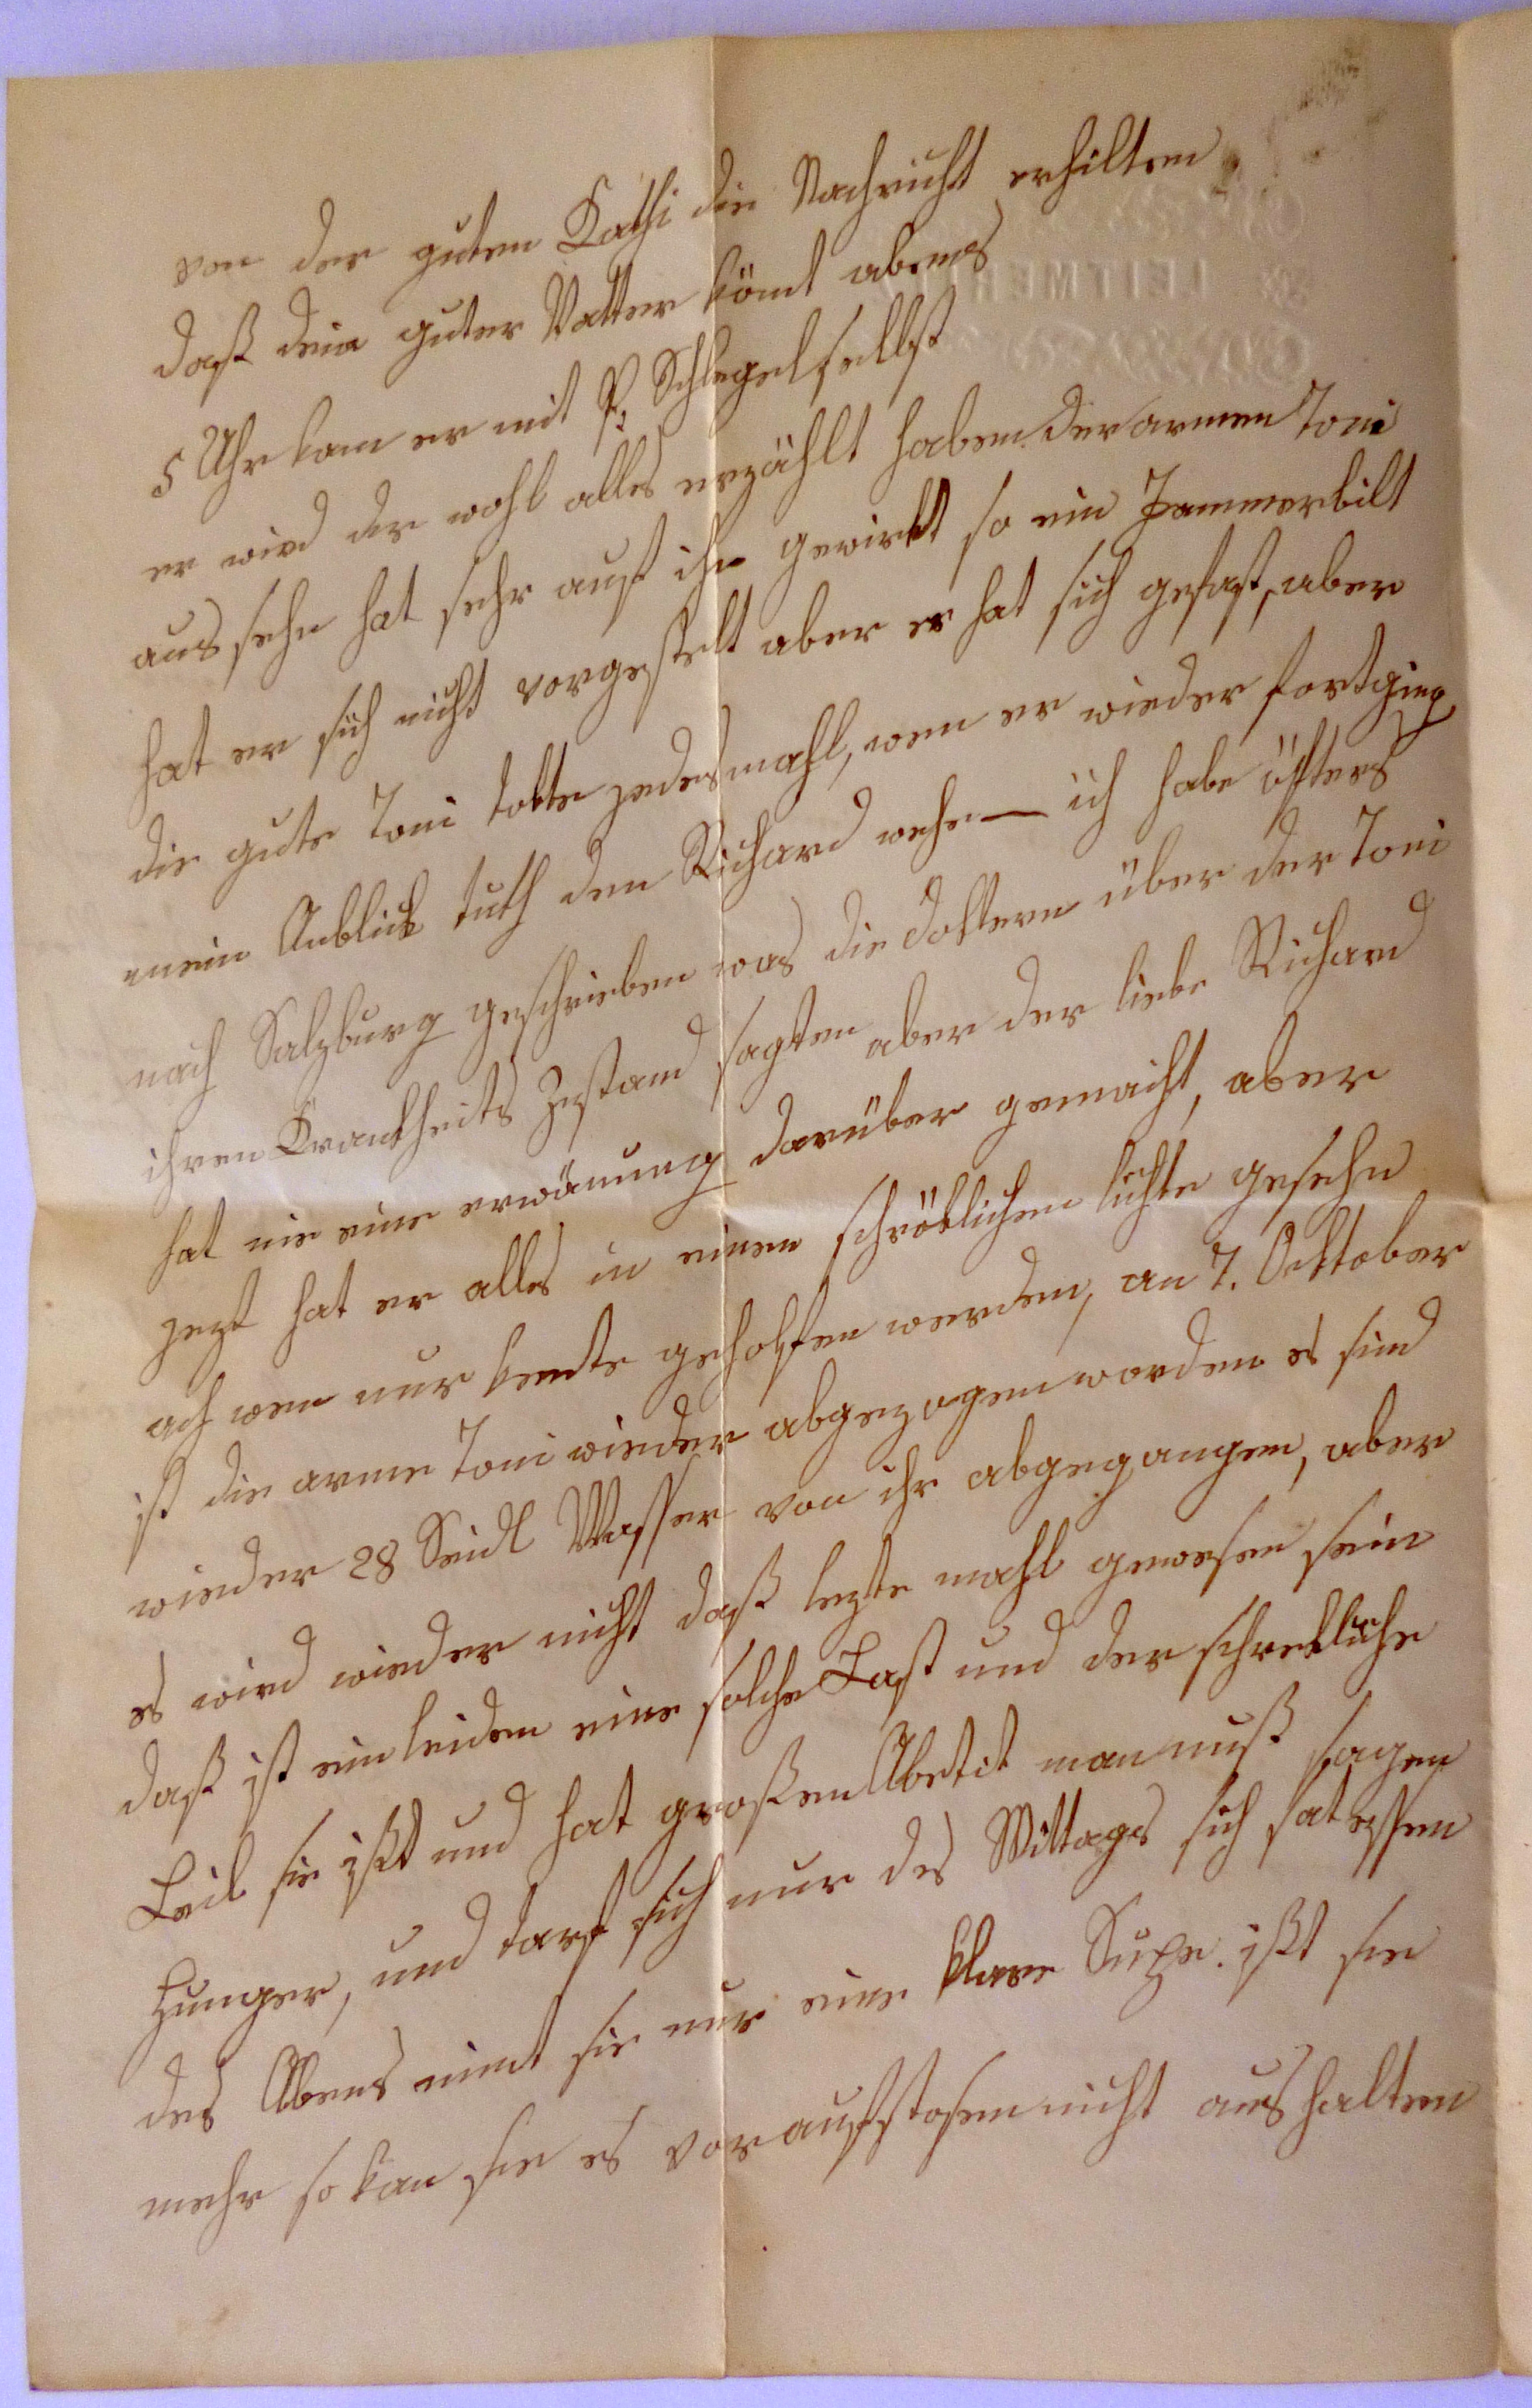 von der guten Kathi die Nachricht erhilten
daß dein guter Vatter kömt abens
5 Uhr kam er mit P. Schlegel selbst
er wird dir wohl alles erzählt haben der armen Toni
aus sehn hat sehr auf ihn gewirkt so ein Jammerbilt
hat er sich nicht vorgestelt aber er hat sich gefast, aber
die gute Toni sagte jedesmahl, wen er wieder fortging
mein Anblick tuth den Richard wehe — ich habe öfters
nach Salzburg geschrieben was die Doktern über der Toni
ihren Krankheits Zustand sagten aber der liebe Richard
hat nie eine erwänung darüber gemacht, aber
jezt hat er alles in einen schröklichen lichte gesehn
ach wen nur kente geholfen werden, an 7. Ocktober
ist die arme Toni wieder abgezogen worden es sind
wieder 28 Seidl Wasser von ihr abgegangen, aber
es wird wieder nicht daß lezte mahl gewesen sein
daß ist ein leiden eine solche Last und der schrekliche
Leib sie ißt und hat großen Abetit man muß sagen
Hunger, und darf sich nur des Mittags sich sat essen
des Abens nimt sie nur eine klare Supe. ißt sie
mehr so kan sie es vor aufstosen nicht aushalten
LEITMER